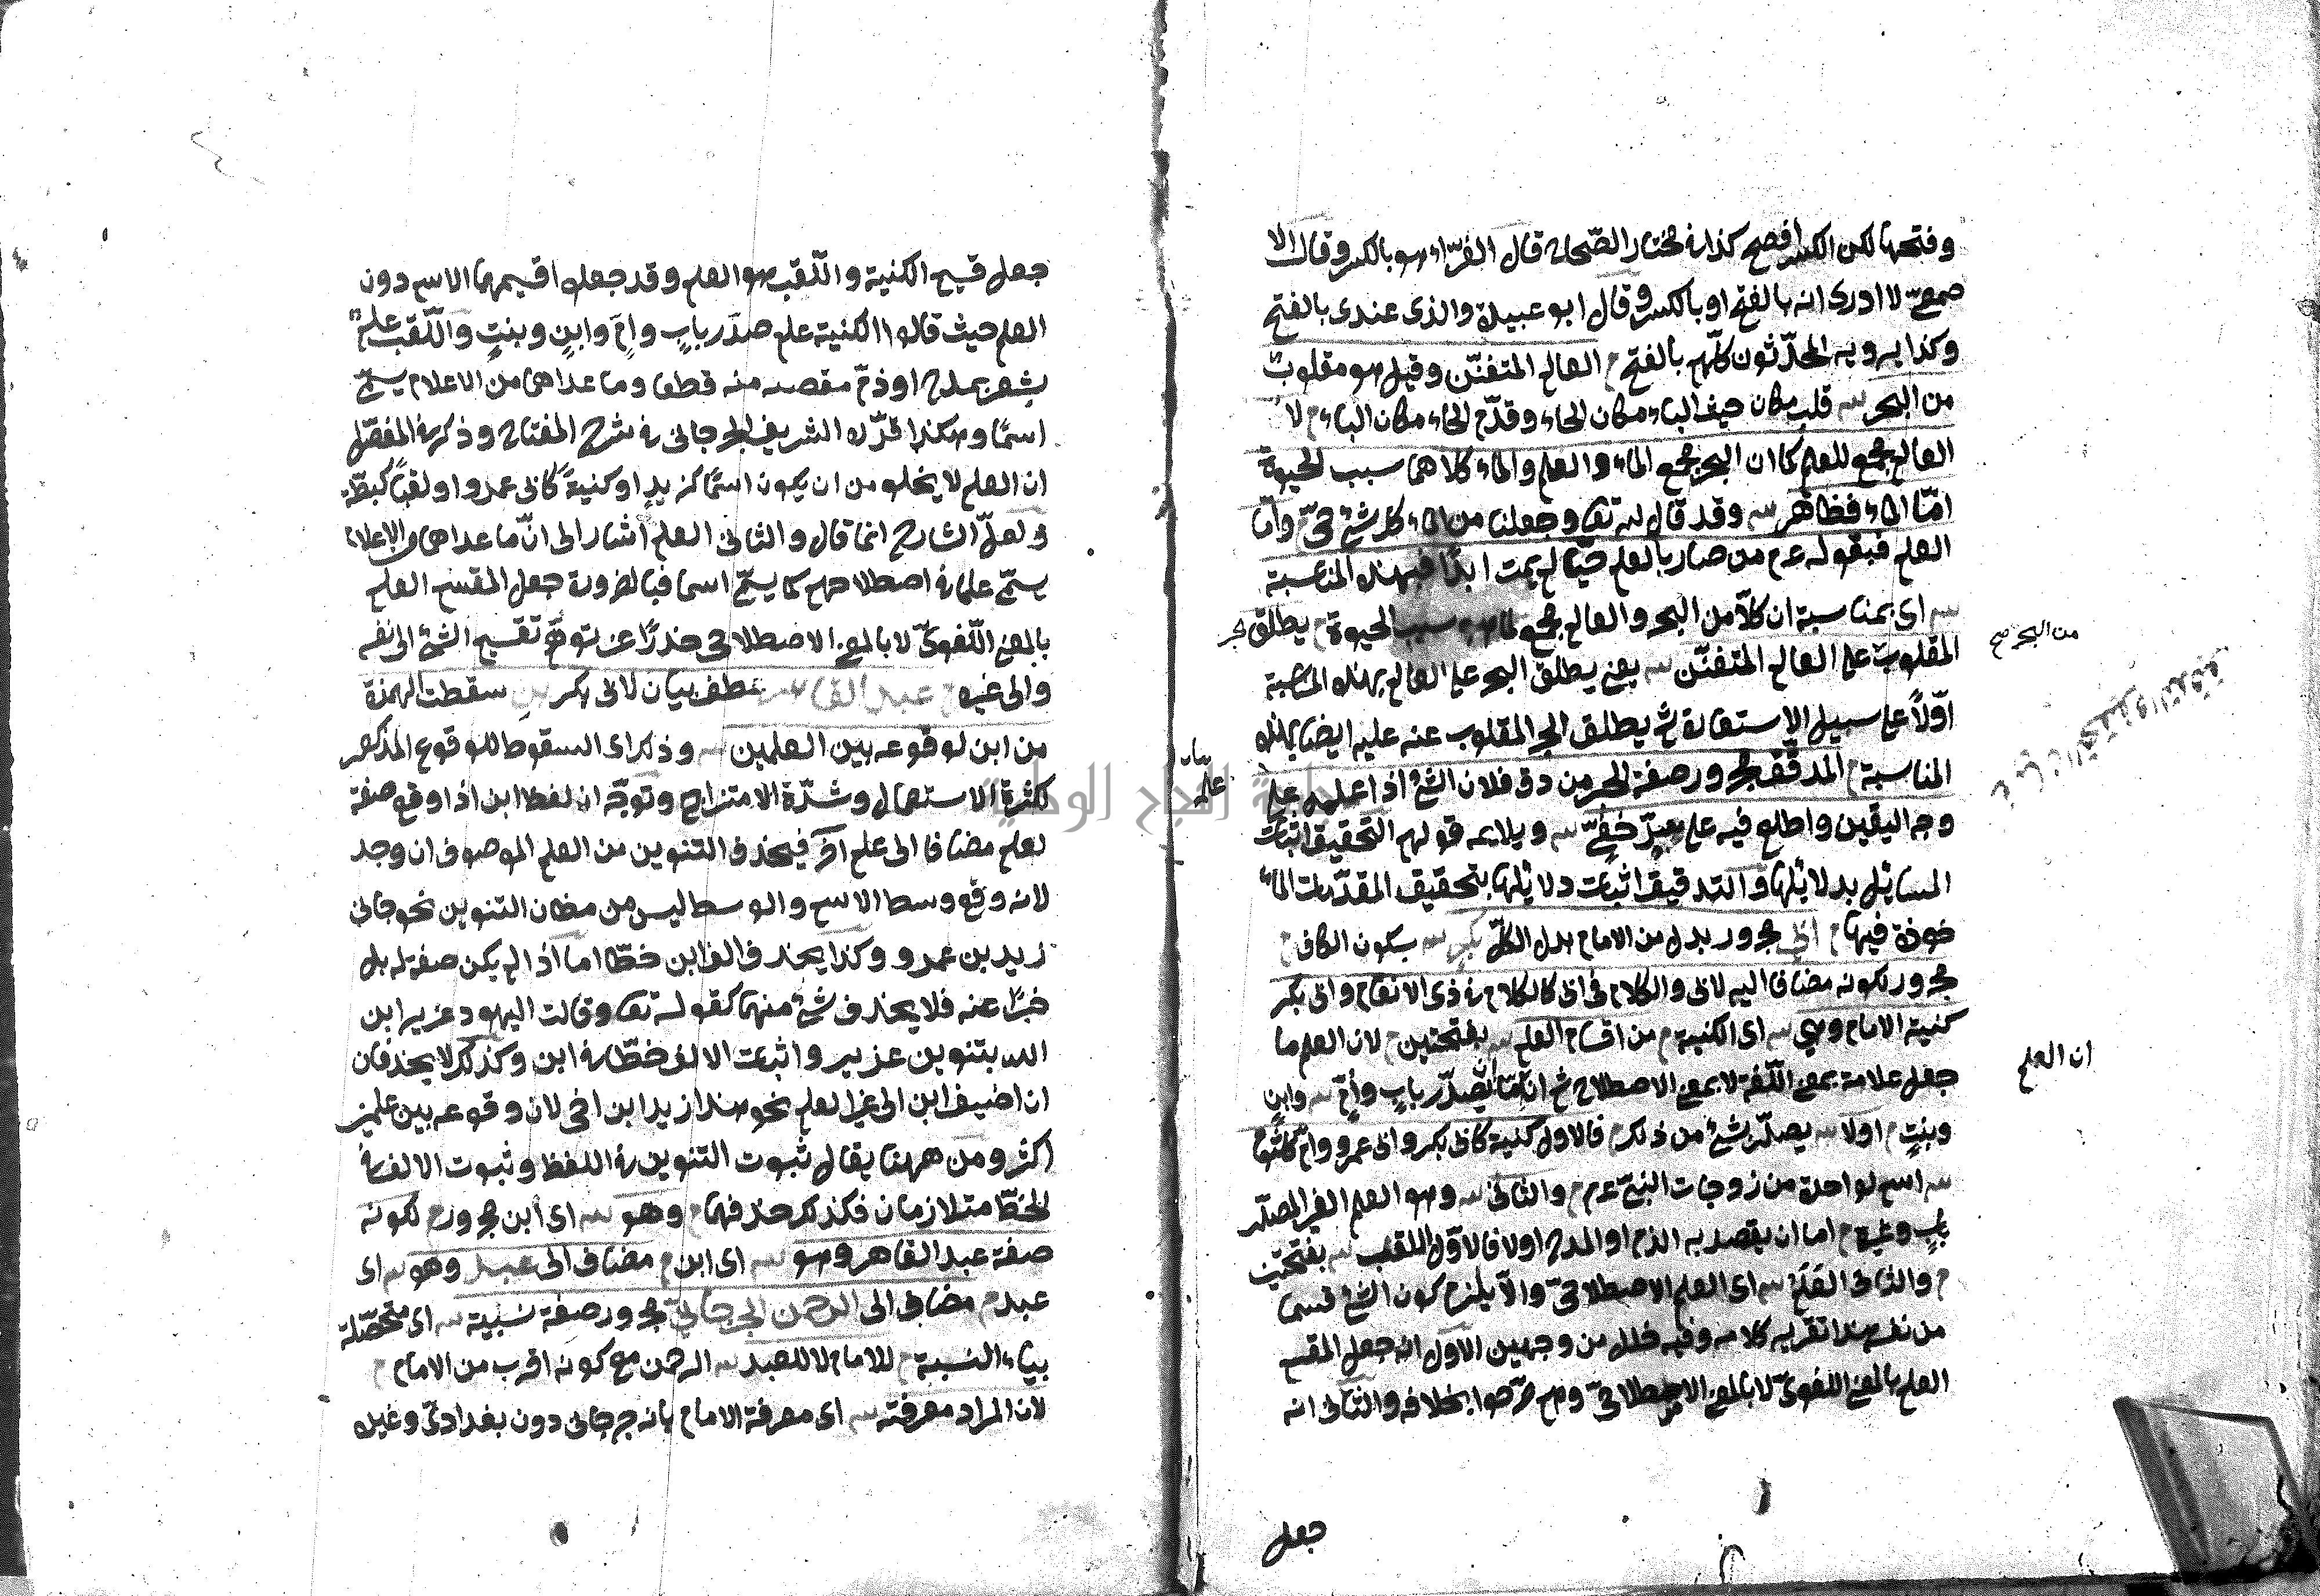 وفتحها لكن الكسر افصح كذا في مختار الصّحاح قال الفرّاء هو بالكسر وقال الا
صمعيّ لا ادرى انه بالفتح او بالكسر وقال ابو عبيدة والذى عندى بالفتح
وكذا يرويه المحدّثون كلّهم بالفتح م العالم المتفنّن وقيل هو مقلوبٌ
من البحر قلب مكان حيث الباء مكان الحاء وقدّم الحاء مكان الباء م لا
العالم مجمع للعلم كما ان البحر مجمع الماء والعلم والماء كلاهما سبب الحيوة
امّا الماء فظاهر وقد قال الله تعا وجعلنا من الماء كل شئ حىّ وامّا
العلم فبقوله عم من صار بالعلم حيّا لم يمت ابدًا فبهذه المناسبة
اى بمناسبة ان كلاّ من البحر والعالم مجمع لما هو سبب الحيوة م يطلق
المقلوب على العالم المتفنّن يعنى يطلق البحر على العالم بهذه المناسبة
اوّلاً على سبيل الاستعارة ثم يطلق الحبر المقلوب عنه عليه ايضا بهذه
المناسبة م المدقّق مجرور صفة الحبر من دقّ فلان الشئ اذا علمه على
وجه اليقين واطلع فيه على سِرّ خفىّ ويلايمه قولهم التحقيق اثبات
المسائل بدلائلها والتدقيق اثبات دلائلها بتحقيق المقدّمات الما
خوذة فيها م ابى مجرور بدل من الامام بدل الكلّ بكر بسكون الكاف م
مجرور لكونه مضافا اليه لابى والكلام فى ابى كالكلام في ذى الانعام وابى بكر
كنية الامام وهى اى الكنية م من اقسام العلم بفتحتين م لان العلم ما
جعل علامة بمعنى اللّغة لا بمعنى الاصطلاح ثم انه امّا يُصدّر بابٍ وأمّ وابنٍ
وبنتٍ م اولا يصدّر بشئ من ذلك م فالاول كنية كابى بكر وابى عمرو وامّ كلثوم
اسم لواحدة من زوجات النبىّ عم م والثانى وهو العلم الغير المصدّر
باب وغيره م اما ان يقصد به الذم او المدح اولا فالاوّل اللقب بفتحتين
م والثانى العَلَم اى العلم الاصطلاحىّ والاّ يلزم كون الشئ قسما
من نفسه هذا تقرير كلامه وفيه خلل من وجهين الاول انه جعل المقسم
العلم بالمعنى اللغوىّ لا بالمعنى الاصطلاحىّ وهم صرّحوا بخلافه والثانى انه
من البحر صح
ان العلم
جعل
جعل قسيم الكنية واللّقب هو العلم وقد جعلوا قسيمهما الاسم دون
العلم حيث قالوا الكنية علم صدّر بابٍ وامّ وابنٍ وبنتٍ واللّقب علم
يشعر بمدح او ذمّ مقصد منه قطعا وما عداهما من الاعلام يسمّى
اسمًا وهكذا قرّره الشريف الجرجانى في شرح المفتاح وذكر في المفصّل
ان العلم لا يخلو من ان يكون اسمًا كزيدٍ او كنيةً كابى عمرو او لقبًا كبطّة
ولعلّ الشارح انما قال والثانى العلم اشار الى انّ ما عداهما من الاعلام
يسمّى علما في اصطلاحهم كما يسمّى اسما فبالضرورة جعل المقسم العلم
بالمعنى اللّغوىّ لا بالمعنى الاصطلاحى حذرًا عن توهّم تقسيم الشئ الى نفسه
والى غيره م عبد القاهر عطف بيان لابى بكر بن سقطت الهمزة
من ابن لوقوعه بين العلمين وذلك اى السقوط للوقوع المذكور
لكثرة الاستعمال وشدّة الامتزاج وتوجّه ان لفظ ابن اذا وقع صفة
لعلم مضافا الى علم آخر فيحذف التنوين من العلم الموصوف ان وجد
لانه وقع وسط الاسم والوسط ليس من مظان التنوين نحو جانى
زيد بن عمرو وكذا يحذف الف ابن خطّا اما اذا لم يكن صفة له بل
خبرًا عنه فلا يحذف شئ منهما كقوله تعا وقالت اليهود عزير ابن
الله بتنوين عزير واثبات الالف خطّا في ابن وكذلك لا يحذفان
ان اضيف ابن الى غير العلم نحو هذا زيد ابن اخى لان وقوعه بين علمين
اكثر ومن ههنا يقال ثبوت التنوين في اللفظ وثبوت الالف في
الخطّ متلازمان فكذلك حذفهما م وهو اى ابن مجرور م لكونه
صفة عبد القاهر وهو اى ابن م مضاف الى عبد وهو اى
عبد م مضاف الى الرحمن الجرجانىّ مجرور صفة نسبية اى متحصّلة
بياء النسبة م للامام لا للعبد الرحمن مع كونه اقرب من الامام م
لان المراد معرفته اى معرفة الامام بانه جرجانى دون بغدادىّ وغيره